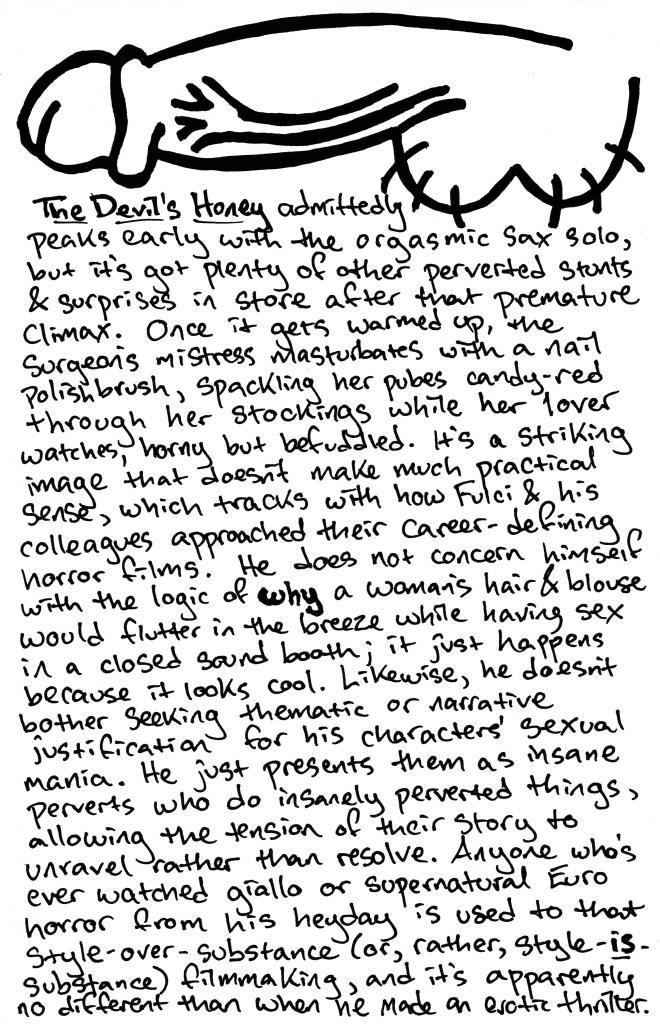 The Devil's Honey admittedly
peaks early with the orgasmic sax solo,
but it's got plenty of other perverted stunts
& surprises in store after that premature
climax. Once it gets warmed up, the
surgeon's mistress masturbates with a nail
polish brush, spackling her pubes candy-red
through her stockings while her lover
watches, horny but befuddled. It's a striking
image that doesn't make much practical
sense, which tracks with how Fulci & his
colleagues approached their career-defining
horror films. He does not concern himself
with the logic of why a woman's hair & blouse
would flutter in the breeze while having sex
in a closed sound booth; it just happens
because it looks cool. Likewise, he doesn't
bother seeking thematic or narrative
justification for his characters' sexual
mania. He just presents them as insane
perverts who do insanely perverted things,
allowing the tension of their story to
unravel rather than resolve. Anyone who's
ever watched giallo or supernatural Euro
horror from his heyday is used to that
style-over-substance (or, rather, style-is-
substance) filmmaking, and it's apparently
no different than when he made an erotic thriller.